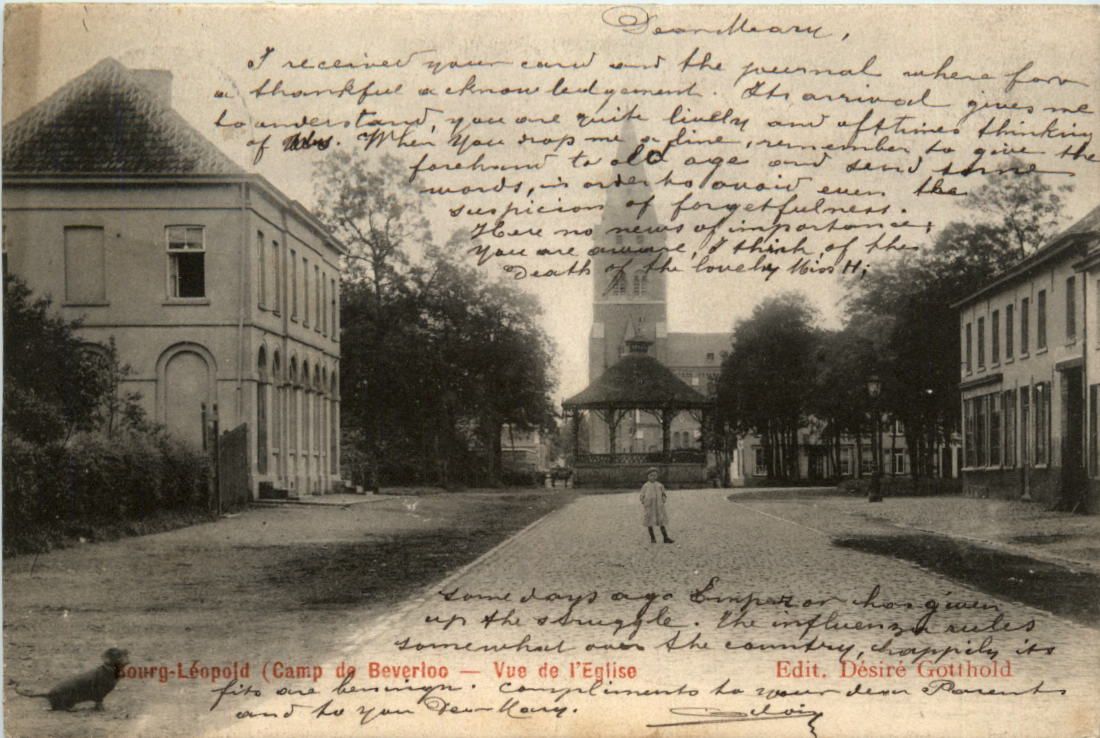 Dear Mary,
I received your card and the journal where for
a thankful acknowledgement. Its arrival gives me
to understand, you are quite lively and offtimes thinking
of When you drop me a line, remember to give the
forehand to old age and send some
words, in order to avoid even the
suspicion of forgetfulness.
Here no news of importance;
you are aware, I think, of the
Death of the lovely Miss H;
some days ago Emperor has given
up the struggle. The influenza rules
somewhat over the country, happily its
Bourg-Léopold (Camp de Beverloo — Vue de l'Eglise Edit. Désiré Gotthold
fits are benign. Compliments to your dear Parents
and to you Dear Mary.